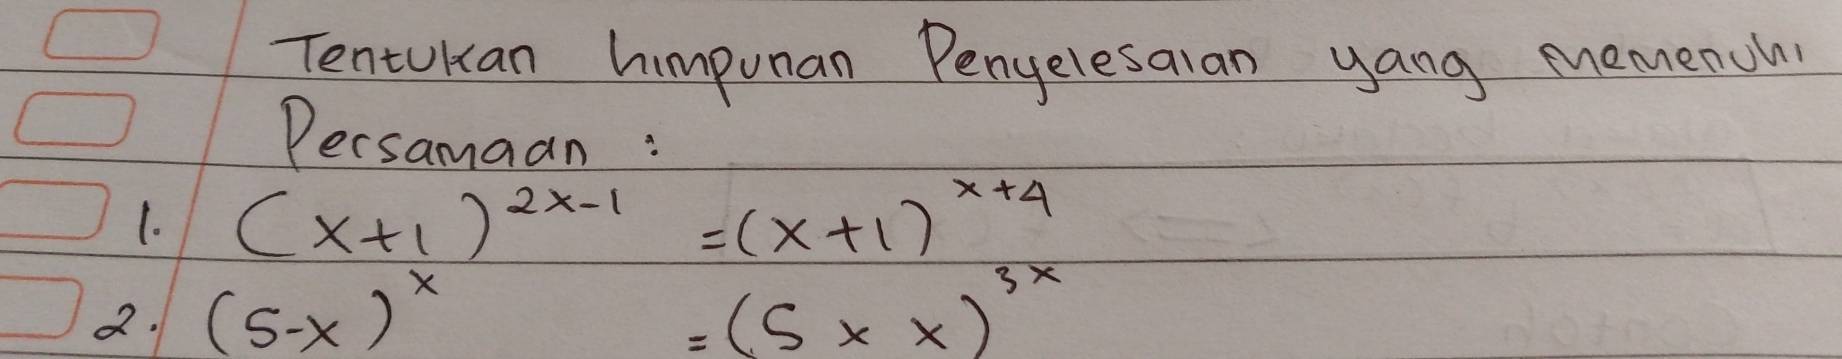 Tentukan himpunan Penyelesaian yang memenuhi
Persamaan :
1. (x+1)^{2x-1} = (x+1)^{x+4}
2. (5-x)^{x} = (5 x x)^{3x}